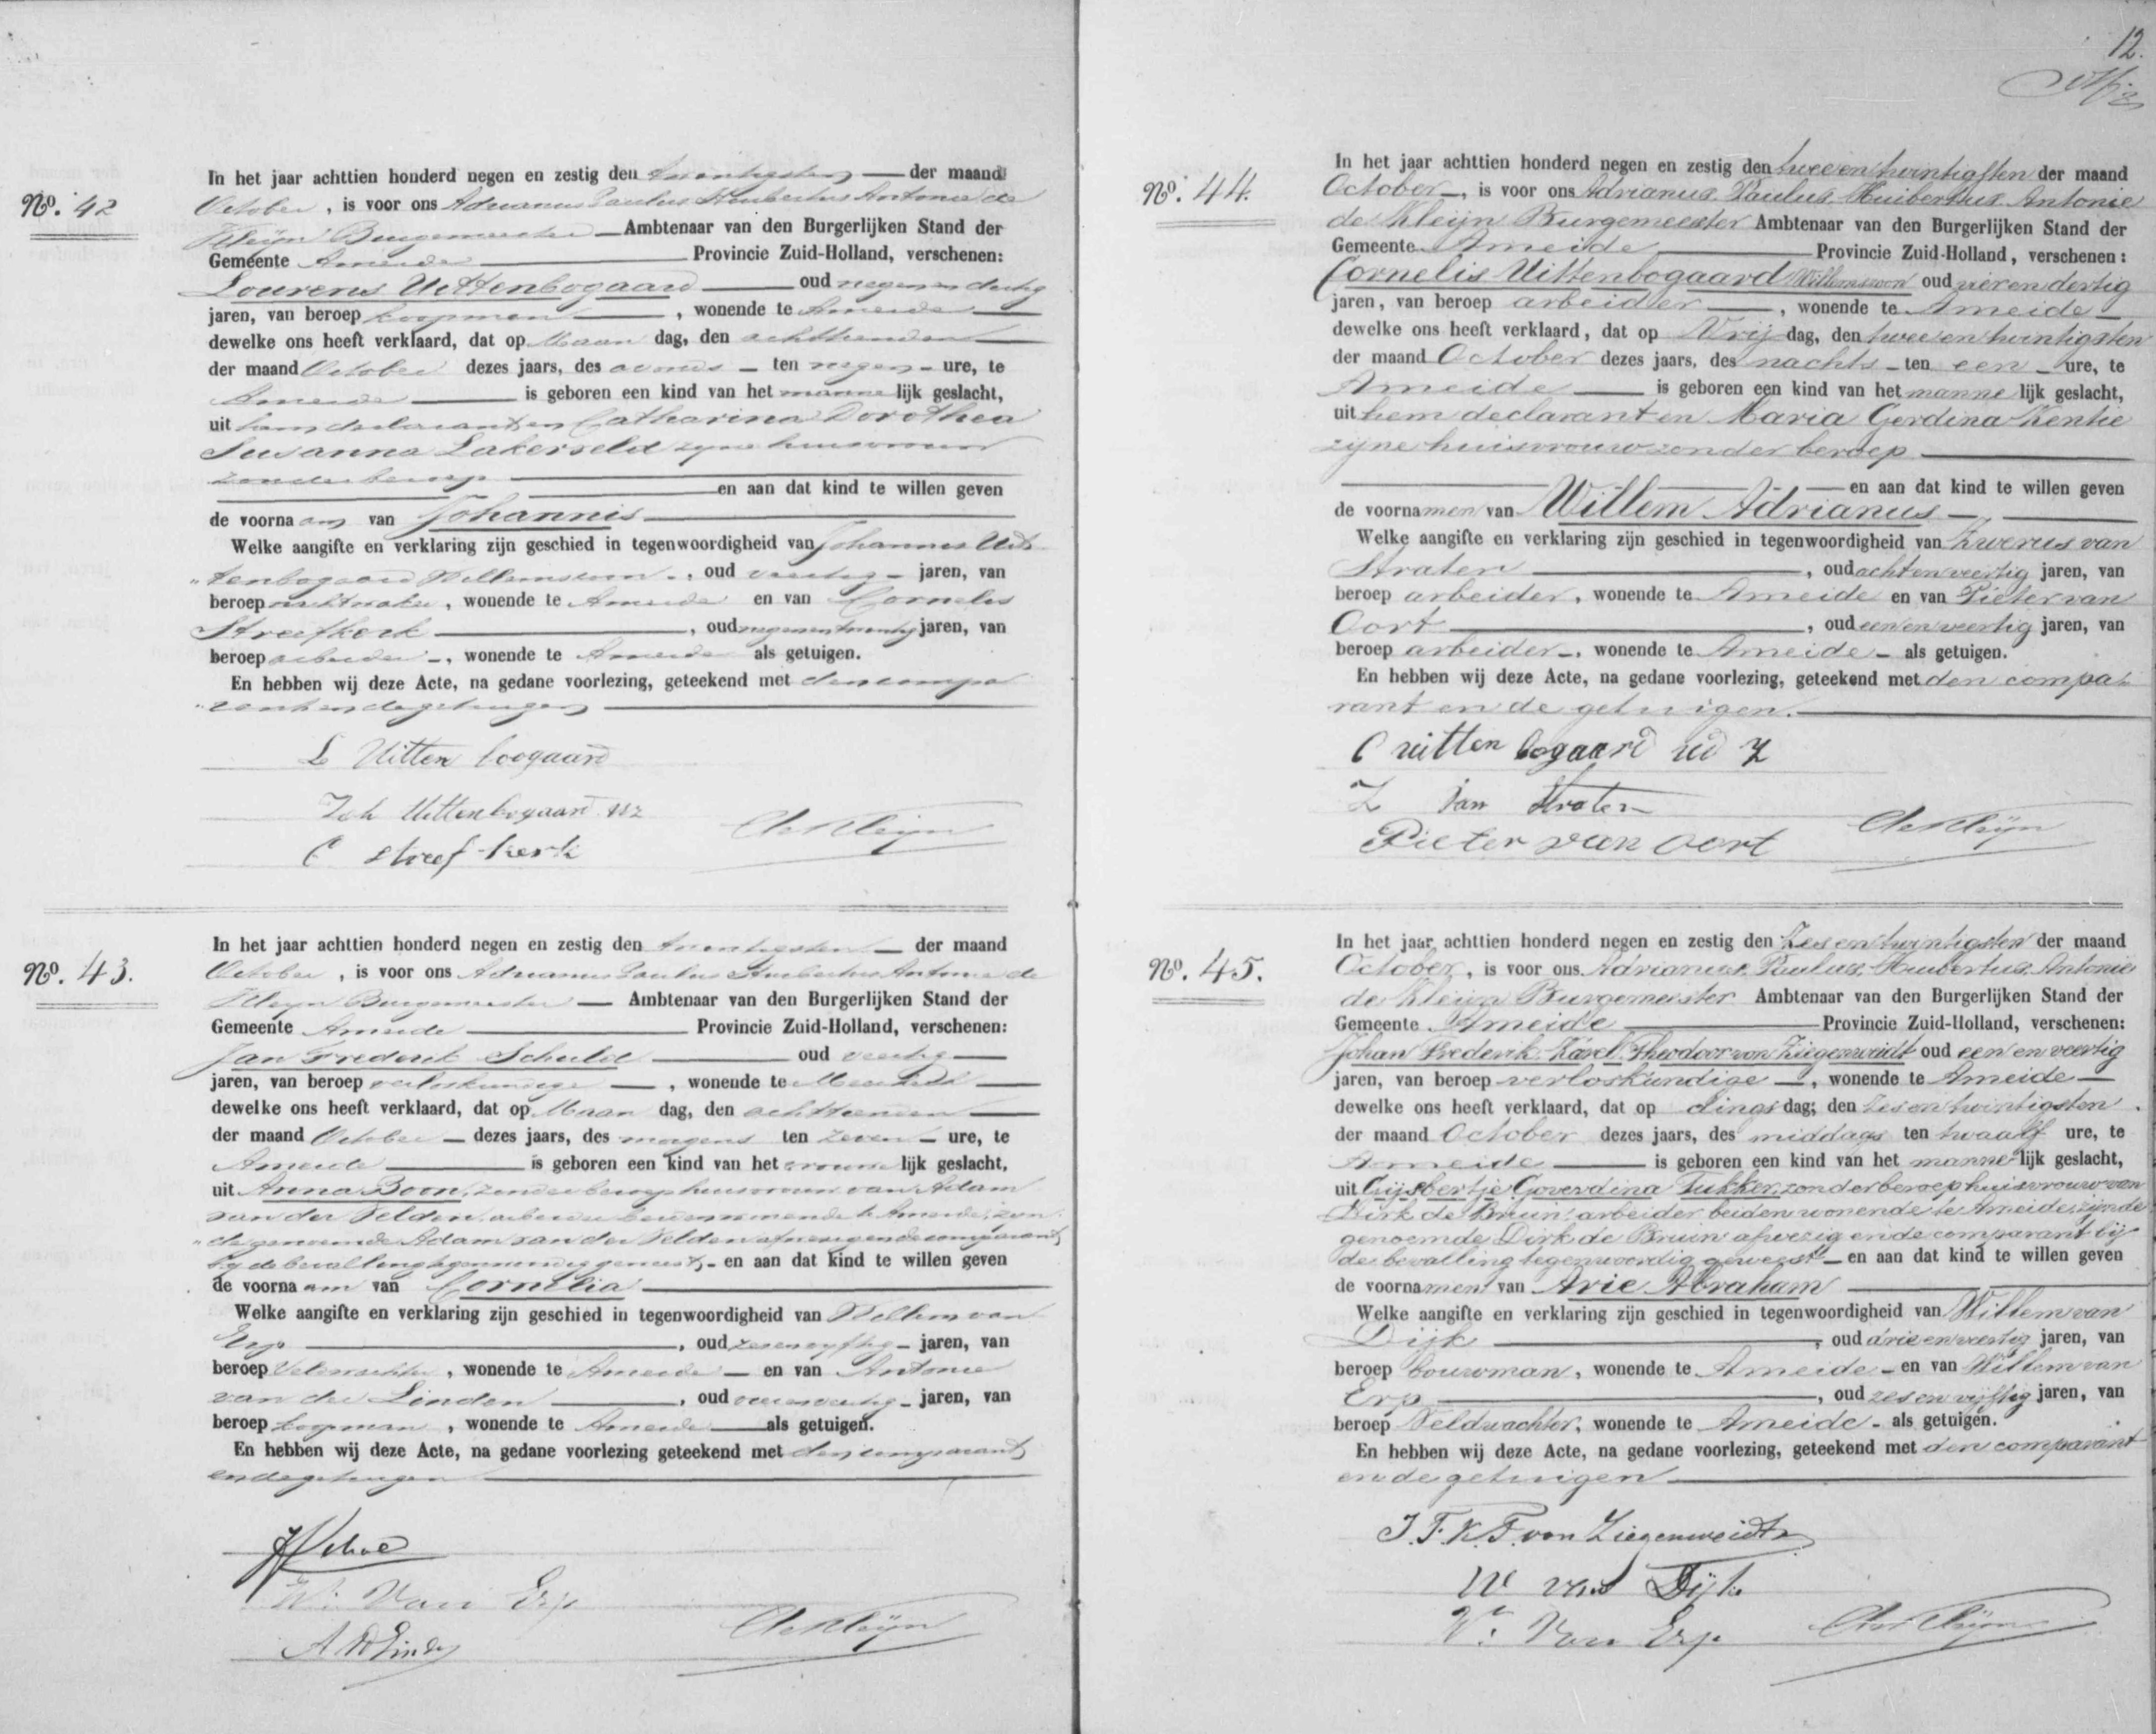 No. 42
In het jaar achttien honderd negen en zestig den twintigsten der maand
October, is voor ons Adrianus Paulus Huibertus Antonie de
Kleijn Burgemeester Ambtenaar van den Burgerlijken Stand der
Gemeente Ameide Provincie Zuid-Holland, verschenen:
Lourens Uittenbogaard oud negenendertig
jaren, van beroep koopman, wonende te Ameide
dewelke ons heeft verklaard, dat op Maan dag, den achttienden
der maand October dezes jaars, des avonds ten negen ure, te
Ameide is geboren een kind van het manne lijk geslacht,
uit hem declarant en Catharina Dorothea
Susanna Lakerveld zijne huisvrouw
zonder beroep
en aan dat kind te willen geven
de voorna am van Johannis
Welke aangifte en verklaring zijn geschied in tegenwoordigheid van Johannes Uit-
"tenbogaard Willemszoon, oud veertig jaren, van
beroep nachtwaker, wonende te Ameide en van Cornelis
Streefkerk, oud negenentwintig jaren, van
beroep arbeider, wonende te Ameide als getuigen.
En hebben wij deze Acte, na gedane voorlezing, geteekend met den compa-
"rant en de getuigen
L Uitten boogaard
Joh Uittenbogaard Wz
C Streef kerk
de Kleijn
No. 43.
In het jaar achttien honderd negen en zestig den twintigsten der maand
October, is voor ons Adrianus Paulus Huibertus Antonie de
Kleijn Burgemeester Ambtenaar van den Burgerlijken Stand der
Gemeente Ameide Provincie Zuid-Holland, verschenen:
Jan Frederik Schuld oud veertig
jaren, van beroep verloskundige, wonende te Meerkerk
dewelke ons heeft verklaard, dat op Maan dag, den achttienden
der maand October dezes jaars, des morgens ten zeven ure, te
Ameide is geboren een kind van het vrouwe lijk geslacht,
uit Anna Boon, zonder beroep huisvrouw van Adam
van der Velden, arbeider beiden wonende te Ameide, zijn-
"de genoemde Adam van der Velden afwezig en de comparant
bij de bevalling tegenwoordig geweest, en aan dat kind te willen geven
de voorna am van Cornelia
Welke aangifte en verklaring zijn geschied in tegenwoordigheid van Willem van
Erp, oud zesenvijftig jaren, van
beroep Veldwachter, wonende te Ameide en van Antonie
van der Linden, oud jaren, van
beroep koopman, wonende te Ameide als getuigen.
En hebben wij deze Acte, na gedane voorlezing geteekend met den comparant
en de getuigen
W: Van Erp
de Kleijn
12.
No. 44.
In het jaar achttien honderd negen en zestig den twee en twintigsten der maand
October, is voor ons Adrianus Paulus Huibertus Antonie
de Kleijn Burgemeester Ambtenaar van den Burgerlijken Stand der
Gemeente Ameide Provincie Zuid-Holland, verschenen:
Cornelis Uittenbogaard Willemszoon oud vierendertig
jaren, van beroep arbeider, wonende te Ameide
dewelke ons heeft verklaard, dat op Vrij dag, den twee en twintigsten
der maand October dezes jaars, des nachts ten een ure, te
Ameide is geboren een kind van het manne lijk geslacht,
uit hem declarant en Maria Gerdina Kentie
zijne huisvrouw zonder beroep
en aan dat kind te willen geven
de voornamen van Willem Adrianus
Welke aangifte en verklaring zijn geschied in tegenwoordigheid van Zwerus van
Straten, oud achtenveertig jaren, van
beroep arbeider, wonende te Ameide en van Pieter van
Oort, oud eenenveertig jaren, van
beroep arbeider, wonende te Ameide als getuigen.
En hebben wij deze Acte, na gedane voorlezing, geteekend met den compa-
rant en de getuigen.
C uitten bogaard wd Z
Z van Straten
Pieter van Oort
de Kleijn
No. 45.
In het jaar achttien honderd negen en zestig den Zes en twintigsten der maand
October, is voor ons Adrianus Paulus Huibertus Antonie
de Kleijn Burgemeester Ambtenaar van den Burgerlijken Stand der
Gemeente Ameide Provincie Zuid-Holland, verschenen:
Johan Frederik Karel Theodoor von Ziegenweidt oud een en veertig
jaren, van beroep verloskundige, wonende te Ameide
dewelke ons heeft verklaard, dat op dings dag; den zes en twintigsten
der maand October dezes jaars, des middags ten twaalf ure, te
Ameide is geboren een kind van het manne lijk geslacht,
uit Gijsbertje Goverdina Tukker, zonder beroep huisvrouw van
Dirk de Bruin, arbeider beiden wonende te Ameide, zijnde
genoemde Dirk de Bruin afwezig en de comparant bij
de bevalling tegenwoordig geweest en aan dat kind te willen geven
de voornamen van Arie Abraham
Welke aangifte en verklaring zijn geschied in tegenwoordigheid van Willem van
Dijk, oud drie en veertig jaren, van
beroep bouwman, wonende te Ameide en van Willem van
Erp, oud zes en vijftig jaren, van
beroep Veldwachter, wonende te Ameide als getuigen.
En hebben wij deze Acte, na gedane voorlezing, geteekend met den comparant
en de getuigen
J. F. K. T. von Ziegenweidt
W van Dijk
W: Van Erp
de Kleijn